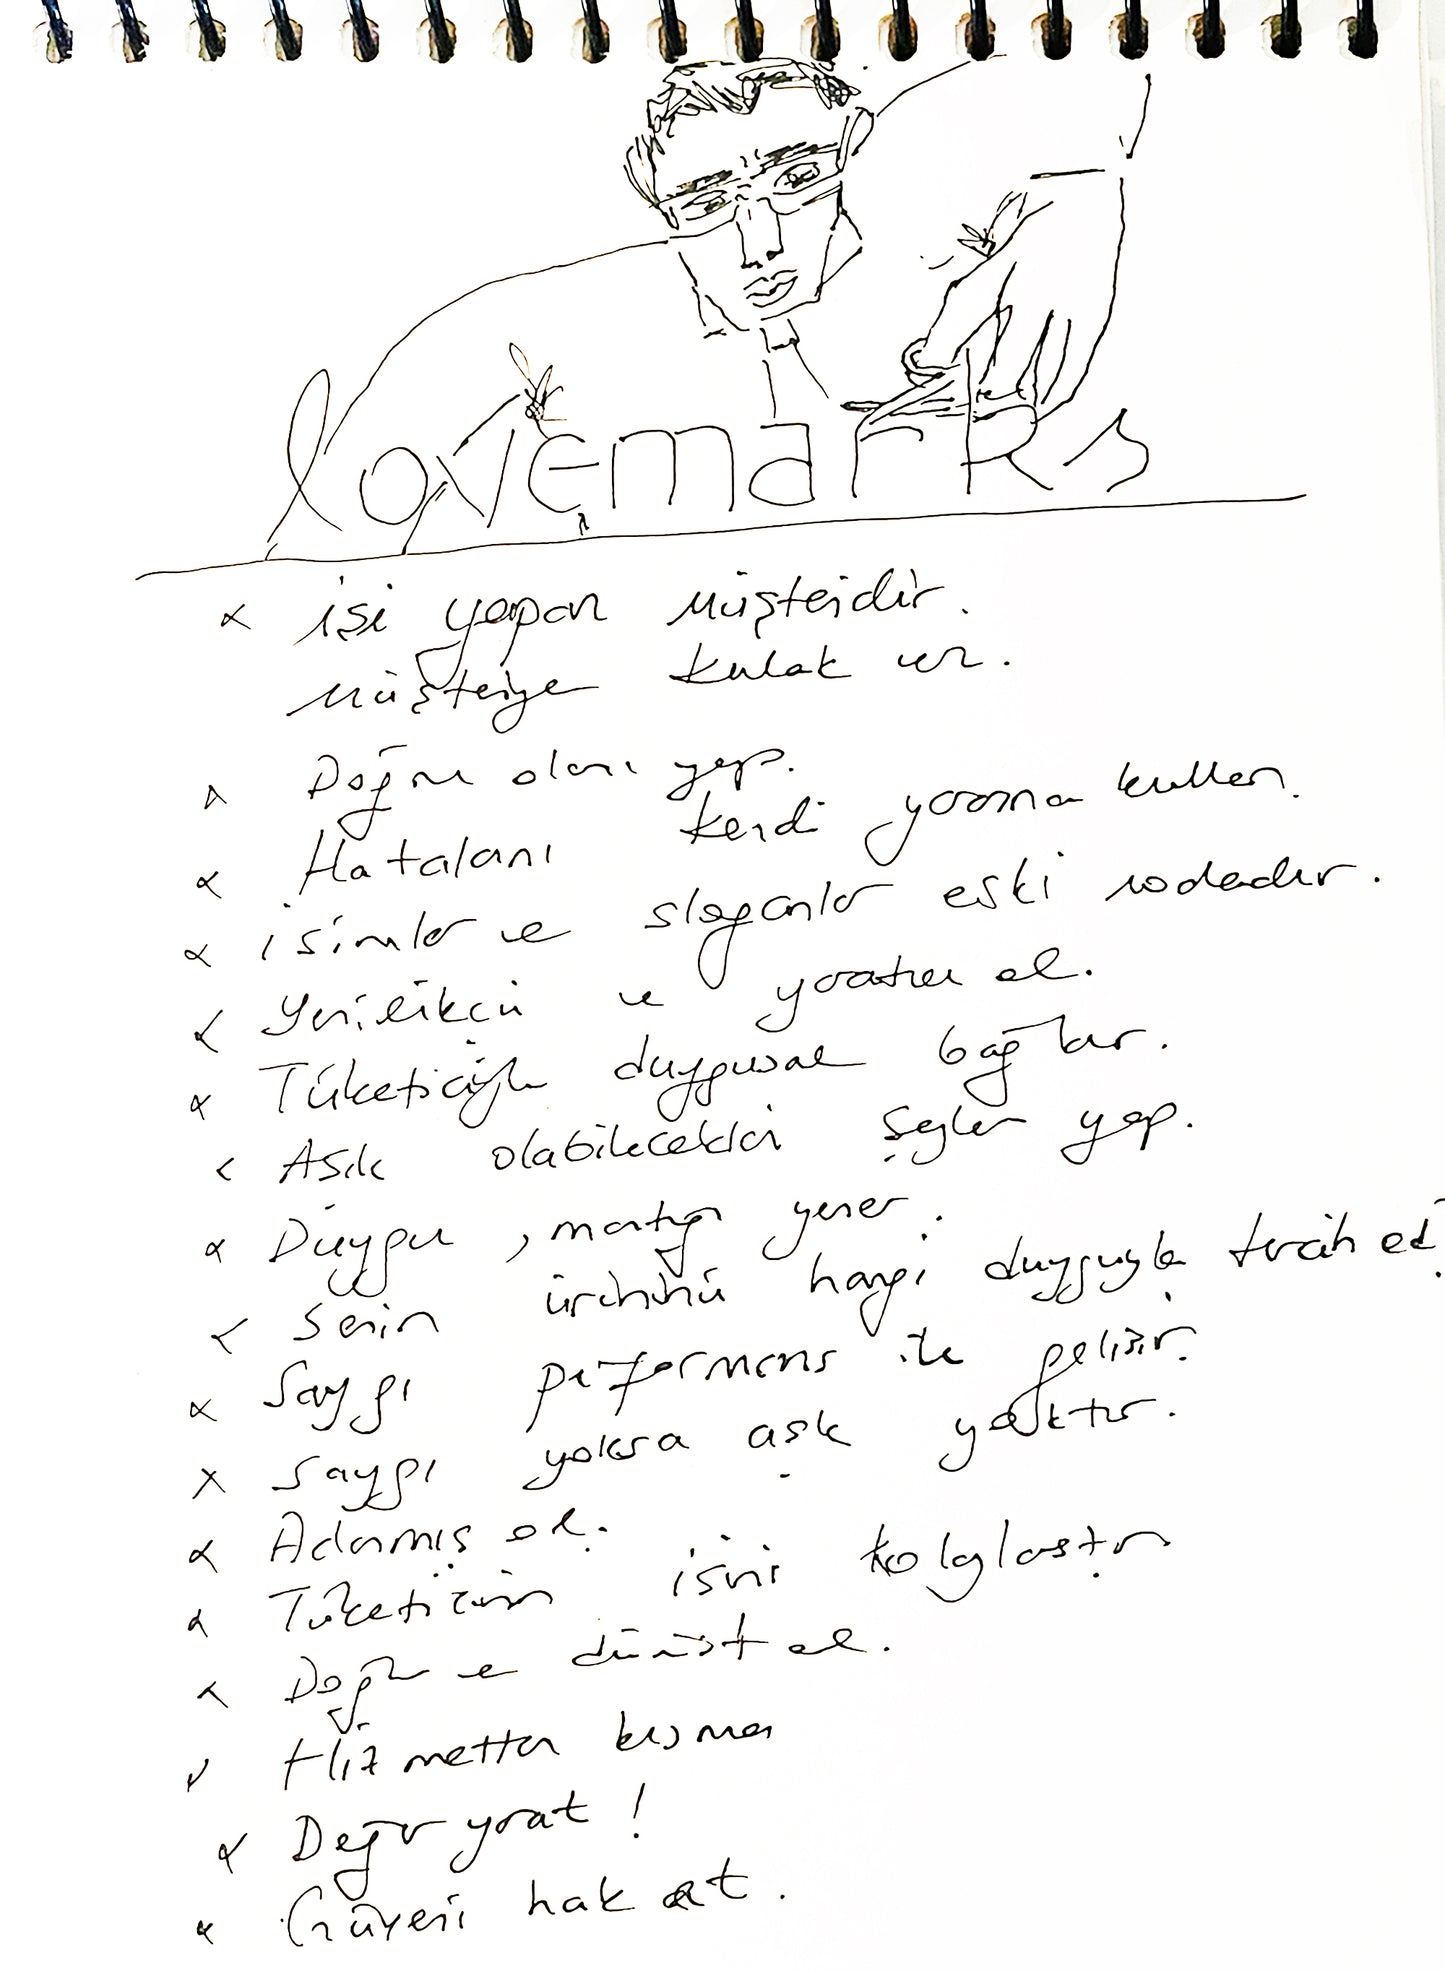 lovemarks
işi yapan müşteridir.
müşteriye kulak ver.
Doğru olanı yap.
Hataları kendi yararına kullan.
isimler ve sloganlar eski modadır.
Yenilikçi ve yaratıcı ol.
Tüketiciyle duygusal bağ kur.
Aşık olabilecekleri şeyler yap.
Duygu, mantığı yener.
Senin ürününü hangi duyguyla tercih ed
Saygı performans ile gelişir.
Saygı yoksa aşk yoktur.
Adanmış ol.
Tüketicinin işini kolaylaştır
Doğru ve dürüst ol.
Hizmetten kısma
Değer yarat!
Güveni hak et.